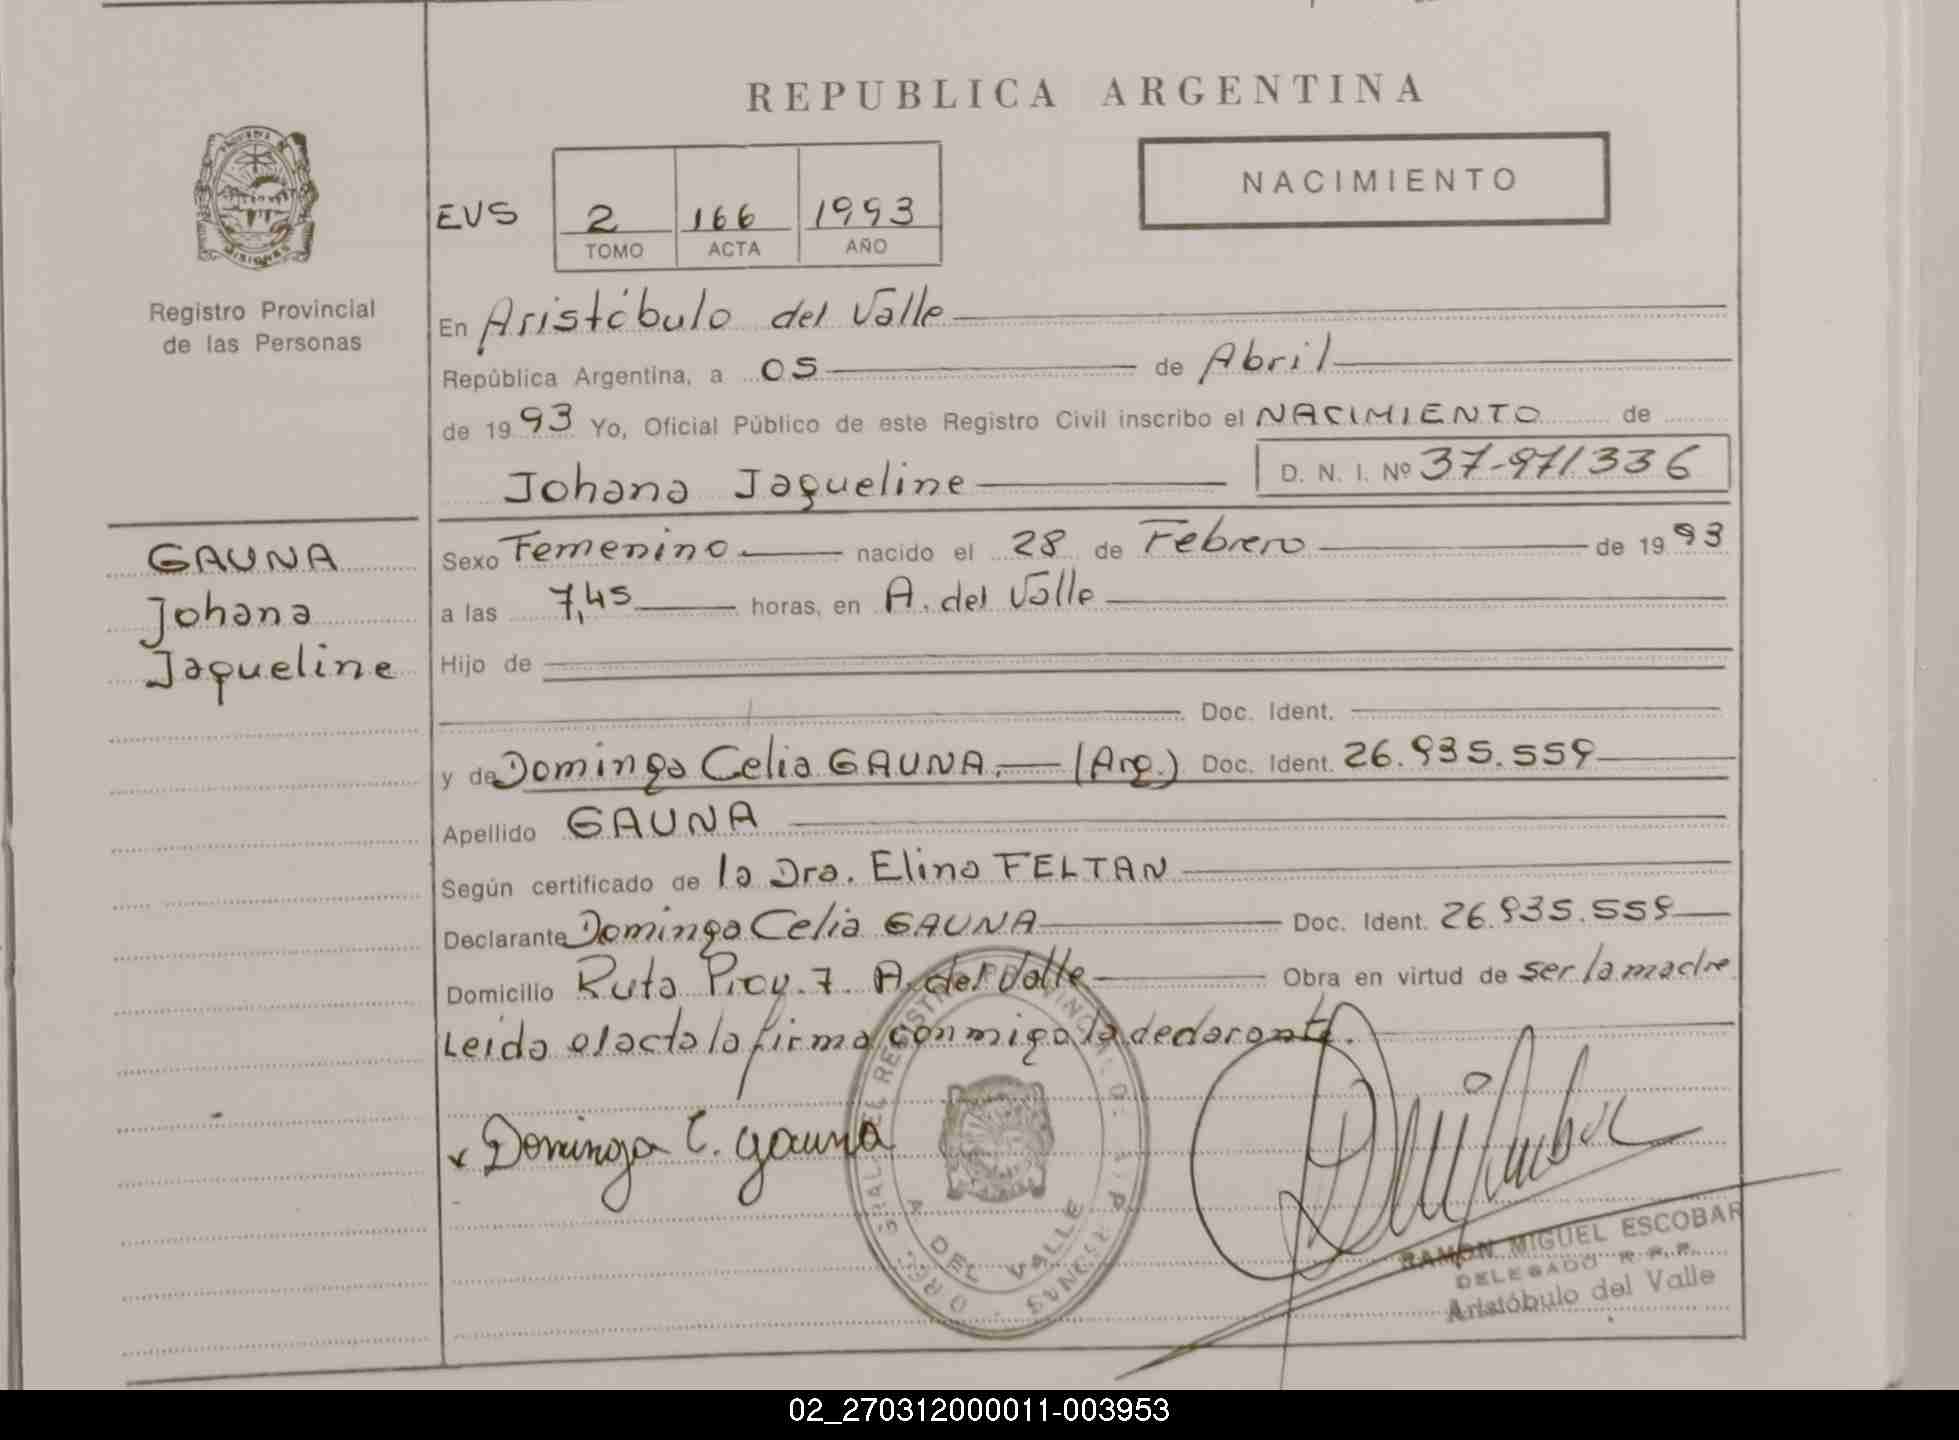 REPUBLICA ARGENTINA
NACIMIENTO
EVS 2 166 1993
TOMO ACTA AÑO
Registro Provincial
de las Personas
En Aristóbulo del Valle
República Argentina, a 05 de Abril
de 1993 Yo, Oficial Público de este Registro Civil inscribo el NACIMIENTO de
Johana Jaqueline D. N. I. Nº 37-971.336
GAUNA
Johana
Jaqueline
Sexo Femenino nacido el 28 de Febrero de 1993
a las 7,45 horas, en A. del Valle
Hijo de
Doc. Ident.
y de Dominga Celia GAUNA. (Arg.) Doc. Ident. 26.935.559
Apellido GAUNA
Según certificado de la Dra. Elina FELTAN
Declarante Dominga Celia GAUNA Doc. Ident. 26.935.559
Domicilio Ruta Prov. 7. A. del Valle Obra en virtud de ser la madre
Leida el acta la firma conmigo la declarante.
Dominga C. Gauna
A. DEL VALLE
RAMON MIGUEL ESCOBAR
DELEGADO R. P. P.
Aristóbulo del Valle
02_270312000011-003953